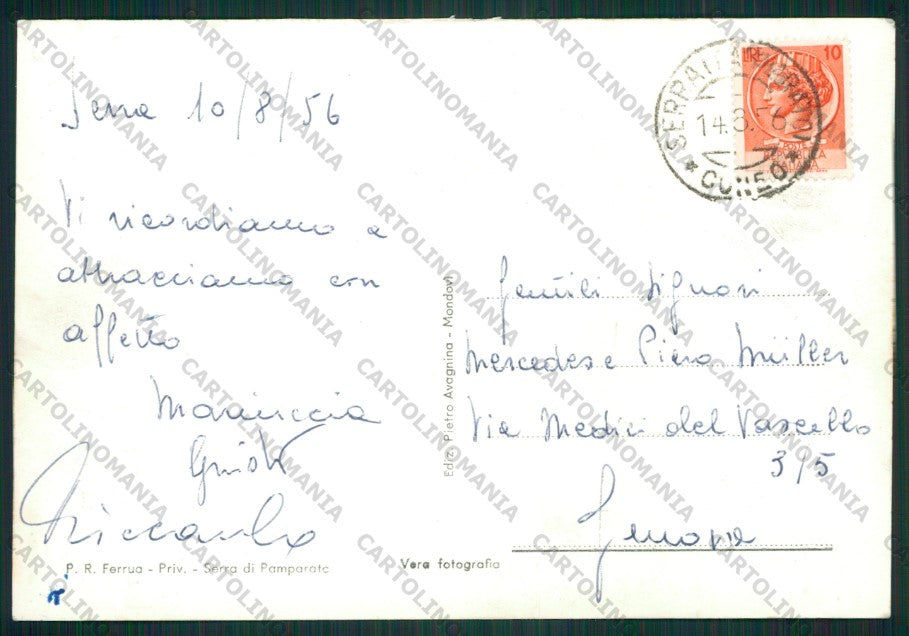 Serra 10/8/56
Vi ricordiamo e
abbracciamo con
affetto
Mariuccia
Riccardo
P. R. Ferrua - Priv. - Serra di Pamparato
Vera fotografia
Ediz. Pietro Avagnina - Mondovì
LIRE 10
14.8.56
CUNEO
Gentili Signori
Mercedes e Piero Müller
Via Medici del Vascello
3/5
Genova
CARTOLINOMANIA